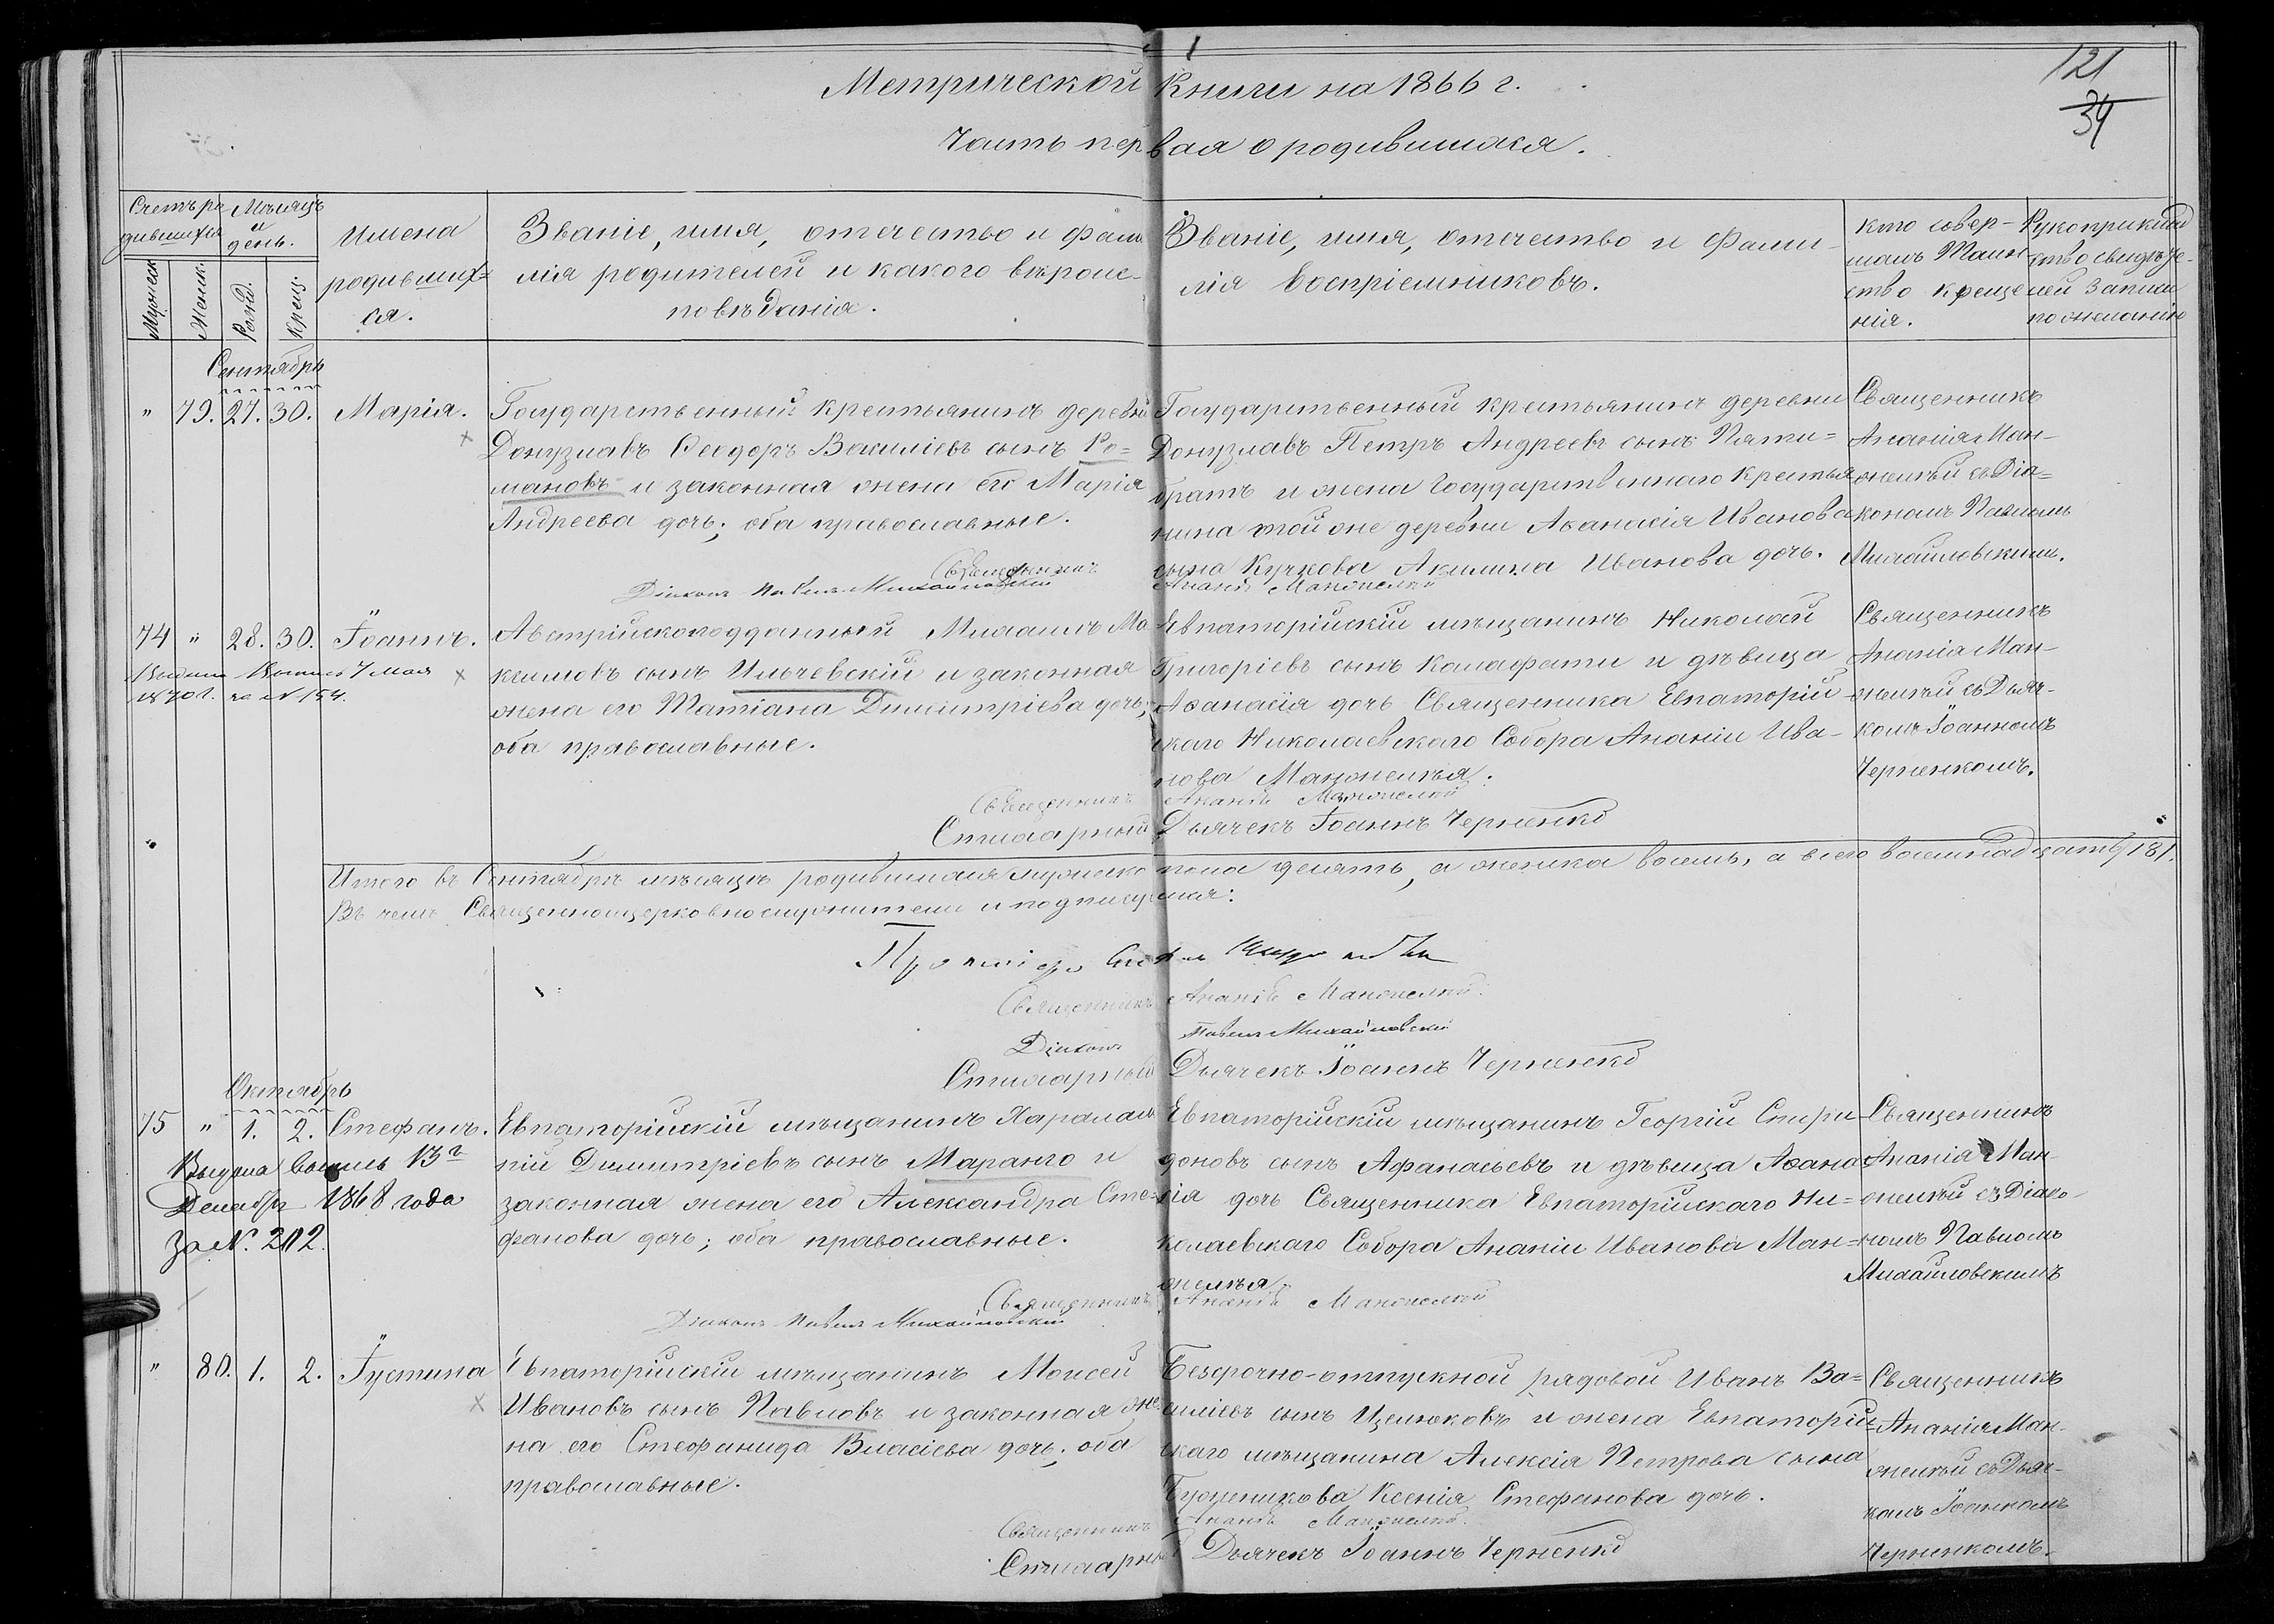 121
34
Метрической Книги на 1866 г.
Часть первая о родившихся.
Счетъ ро-
дившихся
Мѣсяцъ
и
день.
Мужеск.
Женск.
Рожд.
Крещ.
Имена
родивших-
ся.
Званіе, имя, отечество и фами
лія родителей и какого вѣроис-
повѣданія.
Званіе, имя, отечество и Фами-
лія воспріемниковъ.
Кто совер-
шалъ Таин
ство креще
нія.
Рукоприклад
ство свидѣте-
лей записи
по желанію
Сентябрь
" 79. 27. 30. Марія.
Государственный крестьянинъ деревни
Донузлавъ Ѳеодоръ Василіевъ сынъ Ро=
мановъ и законная жена его Марія
Андреева дочь; оба православные.
Государственный крестьянинъ деревни
Донузлавъ Петръ Андреевъ сынъ Пяти=
братъ и жена Государственнаго крестья
нина той же деревни Аѳанасія Иванова
сына Кучкова Акилина Иванова дочь.
Священникъ
Ананія Ман-
желѣй съ Діа=
кономъ Павломъ
Михайловскимъ.
Священникъ Ананій Манжелей
Діаконъ Павелъ Михайловскій
74 " 28. 30. Іоаннъ.
Выдана Выпись 7 мая
1870 г. за № 154.
Австрійскоподданный Михаилъ Ма
ксимовъ сынъ Ильчевскій и законная
жена его Татіана Димитріева дочь;
оба православные.
Евпаторійскій мѣщанинъ Николай
Григоріевъ сынъ Калафати и дѣвица
Аѳанасія дочь Священника Евпаторій-
скаго Николаевскаго Собора Ананіи Ива-
нова Манжелѣя.
Священникъ
Ананія Ман-
желѣй съ Дьяч-
комъ Іоанномъ
Черненкомъ.
Священникъ Ананій Манжелей
Стихарный Дьячекъ Іоаннъ Черненко
Итого въ Сентябрѣ мѣсяцѣ родившихся мужеска пола десять, а женска восемь, а всего восемнадцать /18/.
Въ чемъ Священноцерковнослужители и подписуемся:
Священникъ Ананій Манжелей.
Діаконъ Павелъ Михайловскій
Стихарный Дьячекъ Іоаннъ Черненко
Октябрь
75 " 1. 2. Стефанъ.
Выдана выпись 13го
Декабря 1868 года
за №. 202.
Евпаторійскій мѣщанинъ Харалам
пій Димитріевъ сынъ Маранго и
законная жена его Александра Сте-
фанова дочь; оба православные.
Евпаторійскій мѣщанинъ Георгій Спири-
доновъ сынъ Афанасьевъ и дѣвица Аѳана
сія дочь Священника Евпаторійскаго Ни=
колаевскаго Собора Ананіи Иванова Ман=
желѣя.
Священникъ
Ананія Ман-
желѣй съ Діако-
номъ Павломъ
Михайловскимъ
Священникъ Ананій Манжелей
Діаконъ Павелъ Михайловскій
" 80. 1. 2. Іустина
Евпаторійскій мѣщанинъ Моисей
Ивановъ сынъ Павловъ и законная же
на его Стефанида Власіева дочь; оба
православные.
Безсрочно-отпускной рядовой Иванъ Ва=
силіевъ сынъ Щелоковъ и жена Евпаторій=
скаго мѣщанина Алексія Петрова сына
Ксенія Стефанова дочь.
Священникъ
Ананія Ман-
желѣй съ Дьяч-
комъ Іоанномъ
Черненкомъ.
Священникъ Ананій Манжелей.
Стихарный Дьячекъ Іоаннъ Черненко